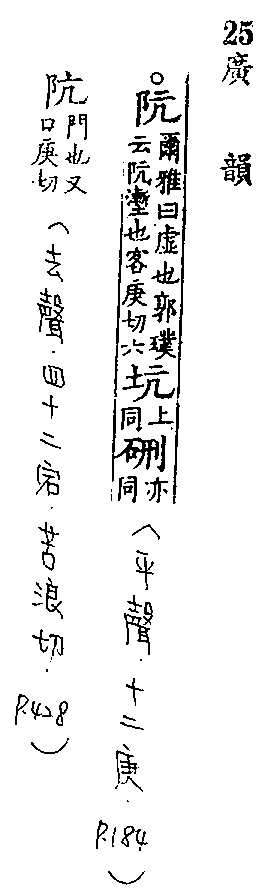 25廣韻
○阬爾雅曰虛也郭璞云阬壍也客庚切六坑上同硎亦同(平聲.十二庚.P.184)
阬門也又口庚切(去聲.四十二宕.苦浪切.P.428)